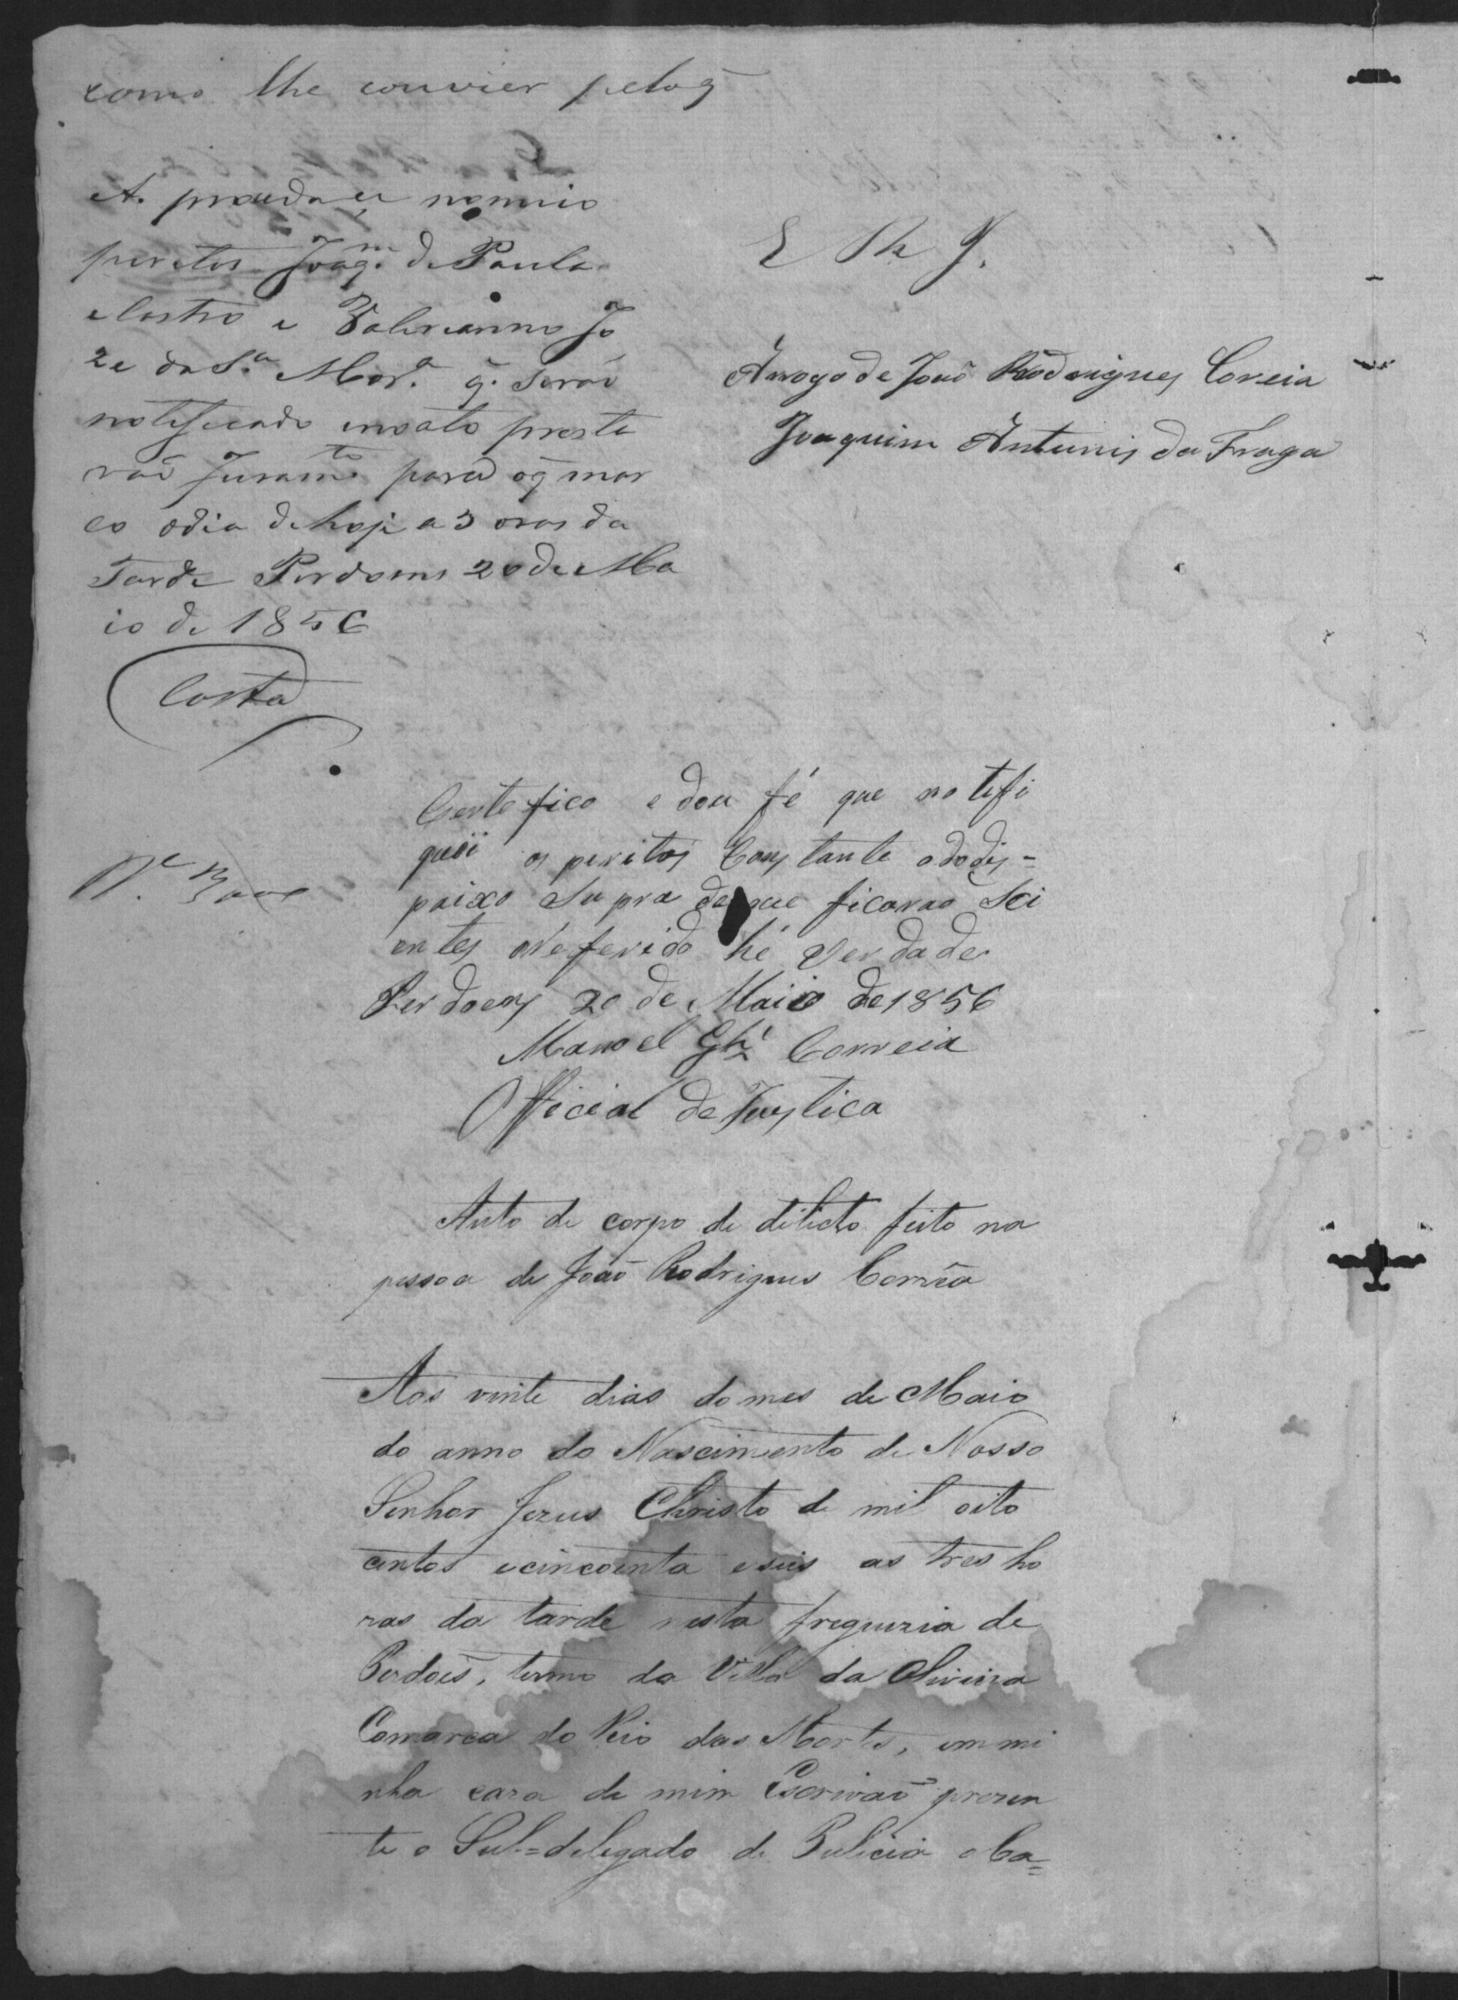 como lhe convier pelo q̃
E R M
A. proceda ce nomeio
peritos Joaq.m de Paula
e Castro e Valerianno Jo
ze da S.a Mor.a q. seraõ
notificado e no ato presta
raõ Juram.to para o q̃ mar
co o dia de hoje as 3 oras da
tarde Perdoens 20 de Ma
io de 1856
Costa
Arrogo de Joaõ Rodrigues Correia
Joaquim Antunis da Fraga
Certefico e dou fé que notifi
quei os peritos Constante o do dis=
paixo Supra de que ficaraõ Sci
entes o Referido hé Verdade
Perdoens 20 de Maio de 1856
Manoel Glz Correia
Official de Justica
Auto de corpo de delicto feito na
pessoa de Joaõ Rodrigues Corrêa
Aos vinte dias do mes de Maio
do anno do Nascimento de Nosso
Senhor Jezus Christo de mil oito
centos e cincoenta e seis as tres ho
ras da tarde nesta freguezia de
Perdoẽs, termo da Villa da Oliveira
Comarca do Rio das Mortes, em mi
nha caza de mim Escrivaõ prezen
te o Sub=delegado de Pulicia o Ca=